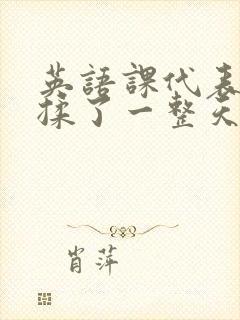 英語課代表
揉了一整天
肖萍